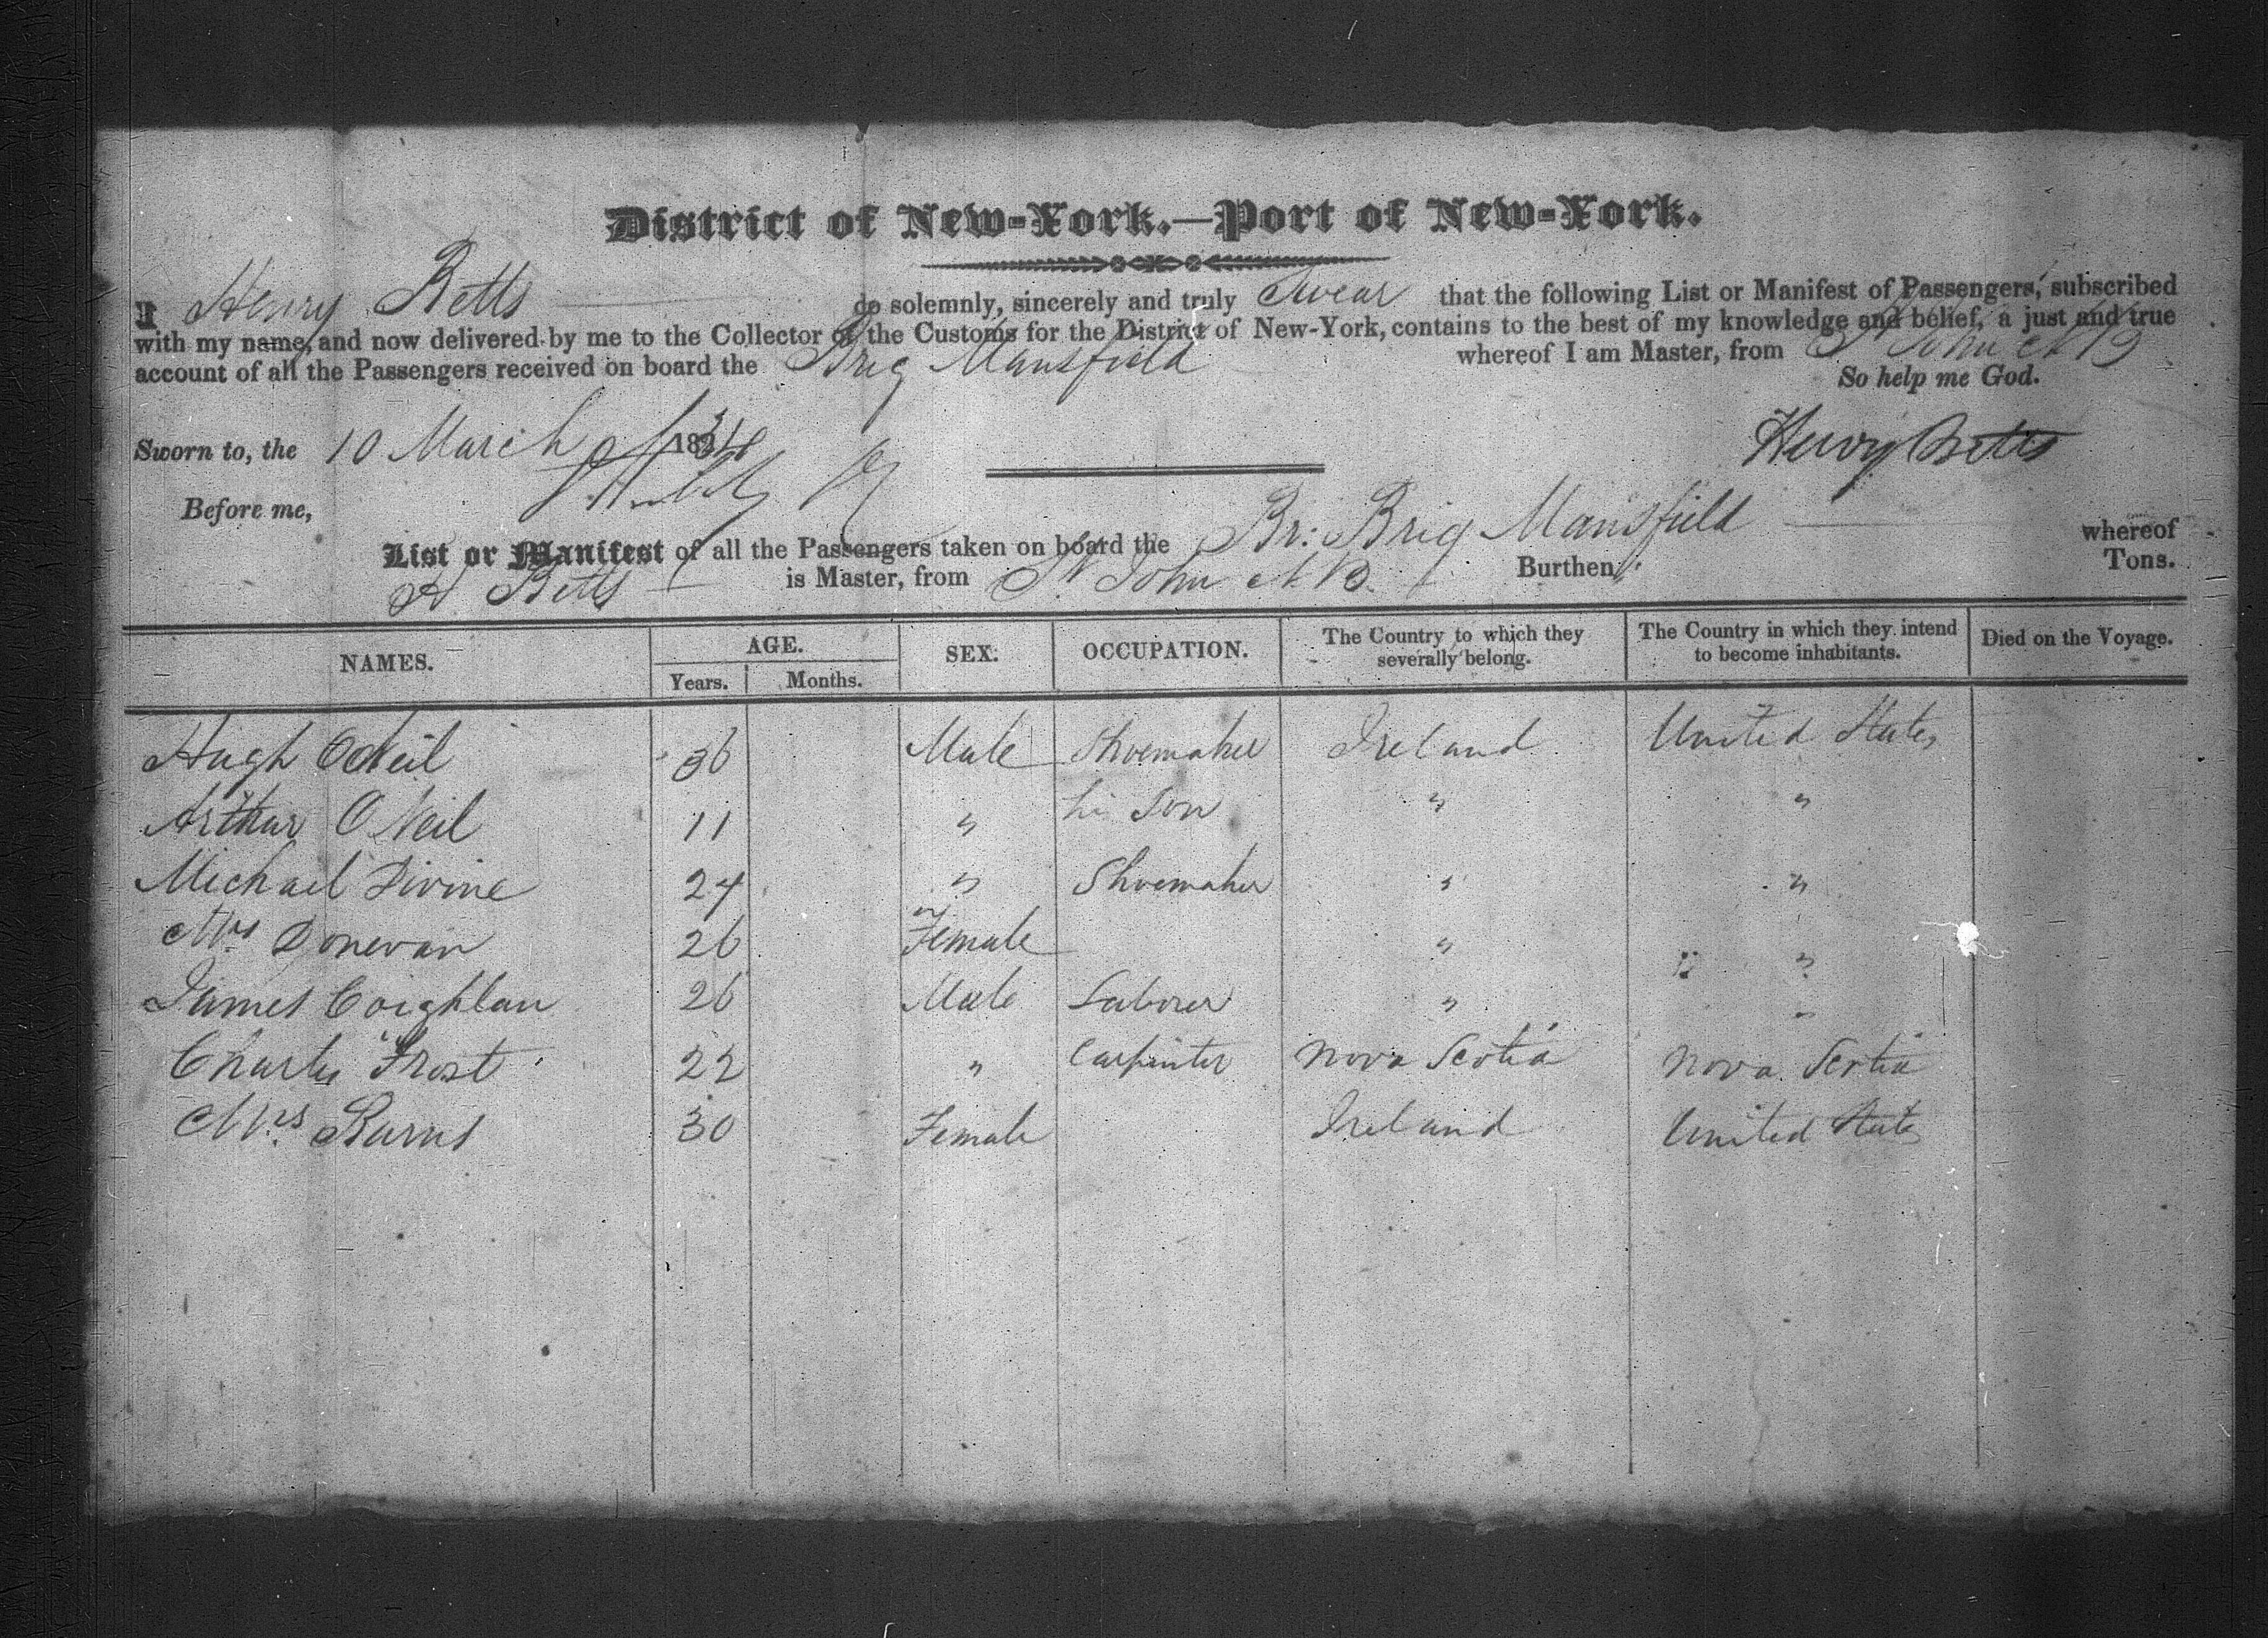 District of New-York.—Port of New-York.
I Henry Betts do solemnly, sincerely and truly Swear that the following List or Manifest of Passengers, subscribed
with my name, and now delivered by me to the Collector of the Customs for the District of New-York, contains to the best of my knowledge and belief, a just and true
account of all the Passengers received on board the Brig Mansfield whereof I am Master, from St John NB
So help me God.
Sworn to, the 10 March 1834
Henry Betts
Before me,
List or Manifest of all the Passengers taken on board the Br: Brig Mansfield whereof
H Betts is Master, from St. John NB. Burthen, Tons.
NAMES. AGE. SEX. OCCUPATION. The Country to which they severally belong. The Country in which they intend to become inhabitants. Died on the Voyage.
Years. Months.
Hugh ONeil 36 Male Shoemaker Ireland United States
Arthur O Neil 11 " his Son " "
Michael Divine 24 " Shoemaker " "
Mrs Donevan 26 Female " "
James Coighlan 26 Male Laborer " "
Charles Frost 22 " Carpinter Nova Scotia Nova Scotia
Mrs Burns 30 Female Ireland United States